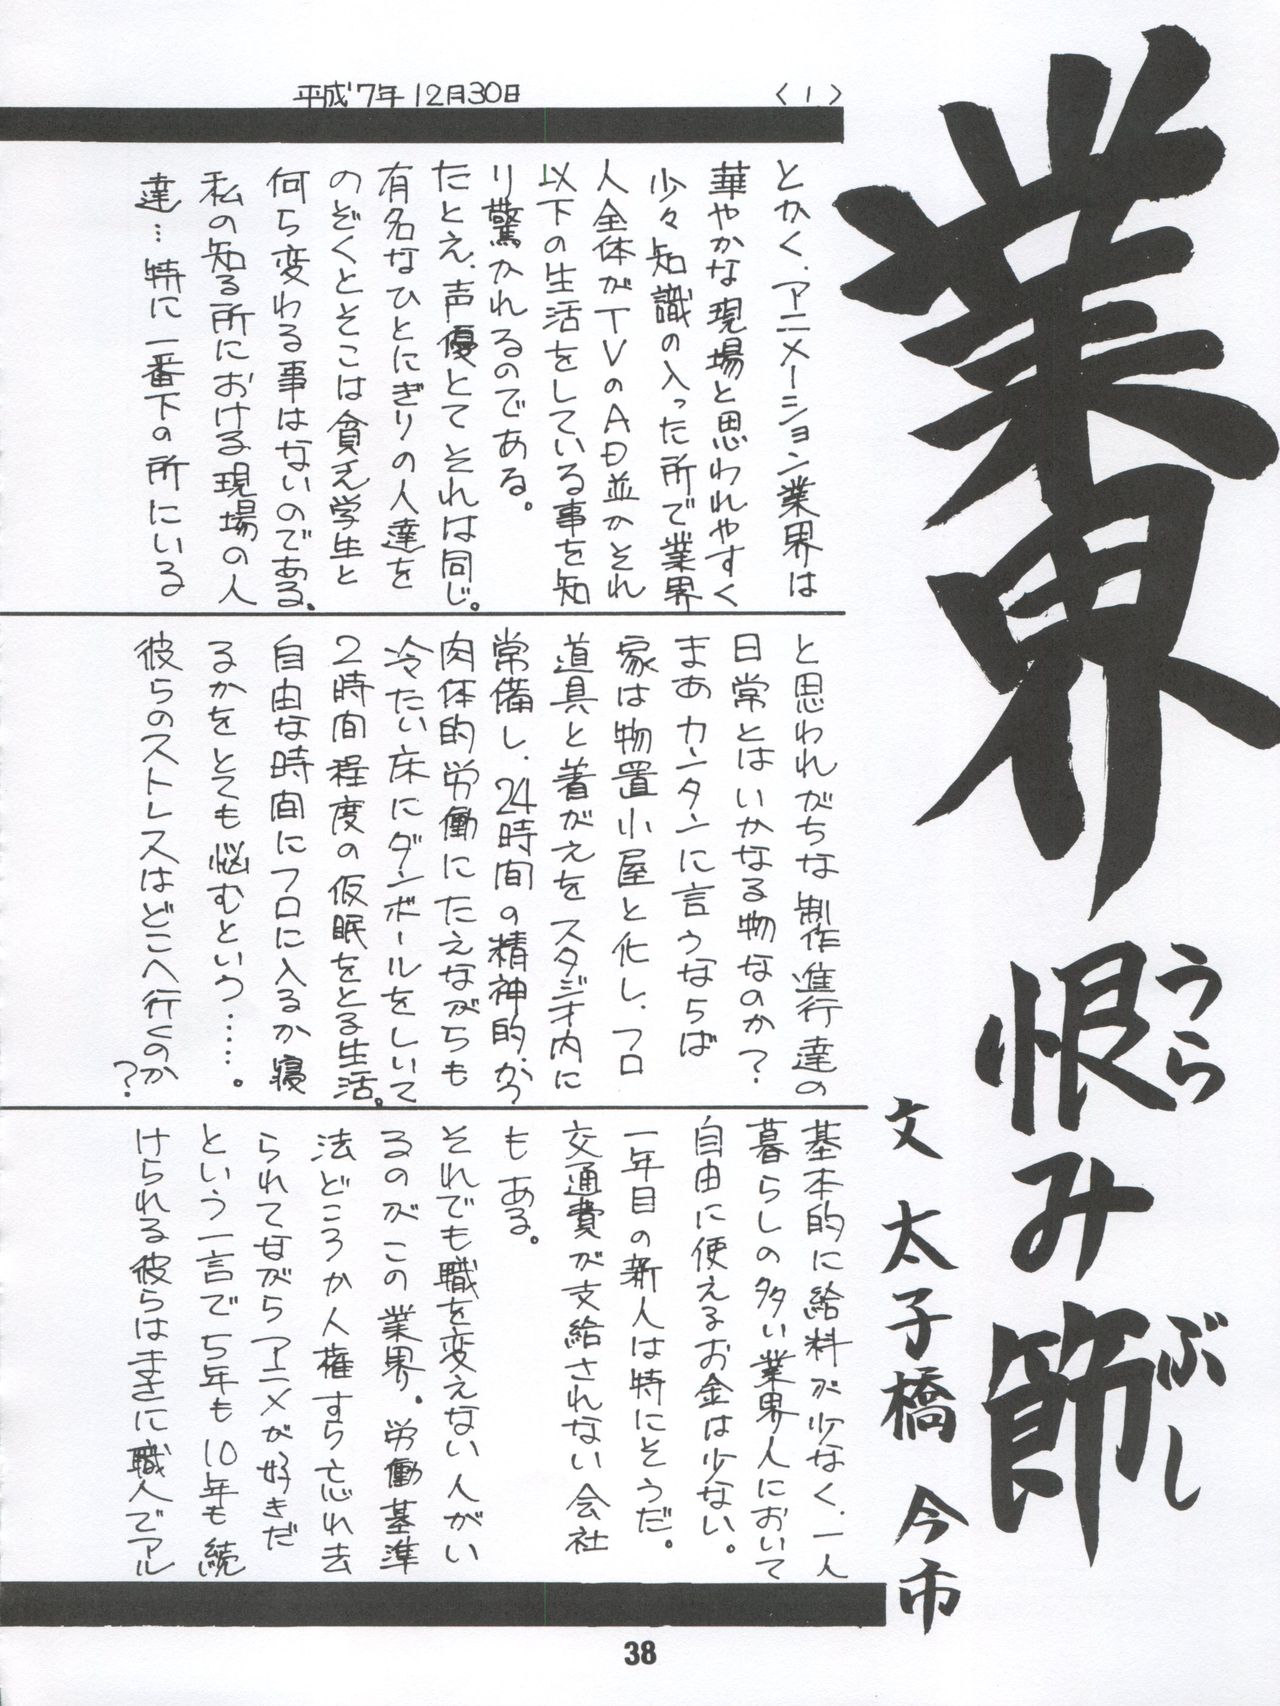 業界
恨み節
うら
ぶし
文 太子橋 今市
平成'7年12月30日
〈1.〉
とかく、アニメーション業界は
華やかな現場と思われやすく
少々知識の入った所で業界
人全体がTVのAD並かそれ
以下の生活をしている事を知
り驚かれるのである。
たとえ、声優とてそれは同じ。
有名なひとにぎりの人達を
のぞくとそこは貧乏学生と
何ら変わる事はないのである。
私の知る所における現場の人
達…特に一番下の所にいる
と思われがちな制作進行達の
日常とはいかなる物なのか?
まあカンタンに言うならば
家は物置小屋と化し、フロ
道具と着がえをスタジオ内に
常備し、24時間の精神的、かつ
肉体的労働にたえながらも
冷たい床にダンボールをしいて
2時間程度の仮眠をとる生活。
自由な時間にフロに入るか寝
るかをとても悩むという……。
彼らのストレスはどこへ行くのか
?
基本的に給料が少なく、一人
暮らしの多い業界人において
自由に使えるお金は少ない。
一年目の新人は特にそうだ。
交通費が支給されない会社
もある。
それでも職を変えない人がい
るのがこの業界。労働基準
法どころか人権すら忘れ去
られてながらアニメが好きだ
という一言で5年も10年も続
けられる彼らはまさに職人でアル
38